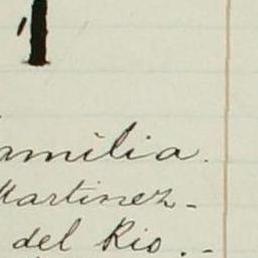 amilia.
Martinez-
del Rio.-